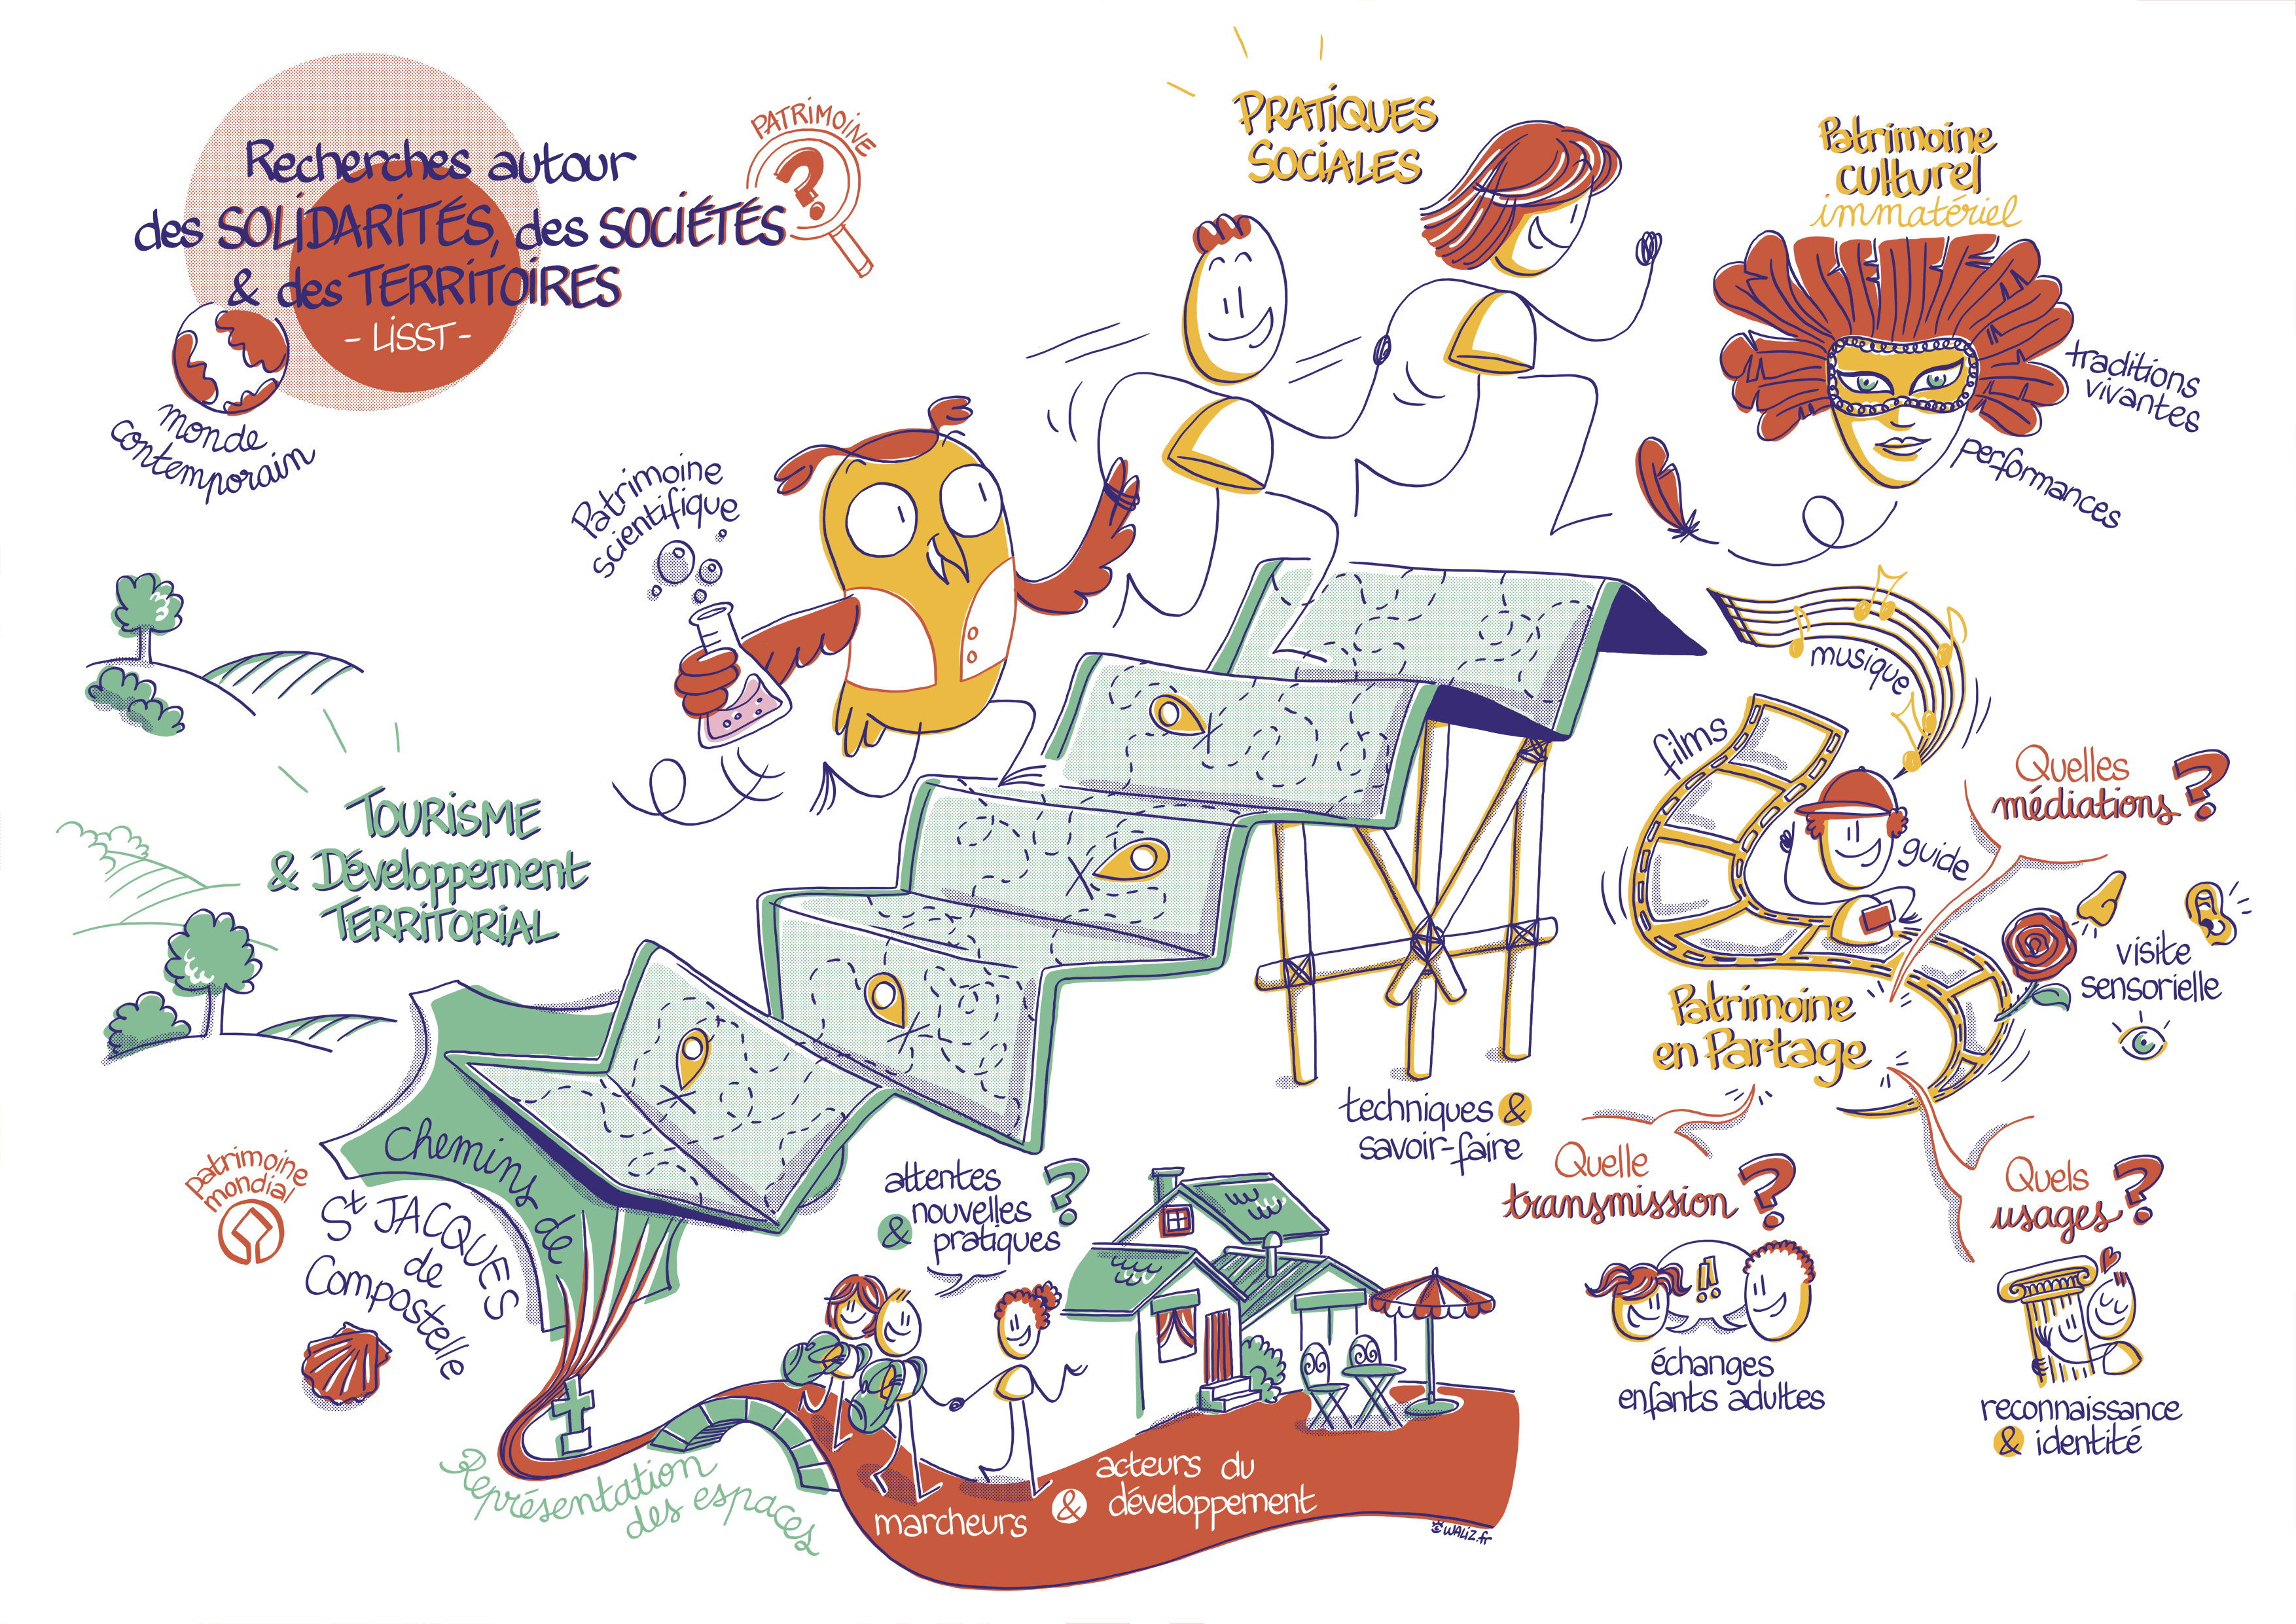 Recherches autour
des SOLIDARITÉS, des SOCIÉTÉS
& des TERRITOIRES
- LISST -
PATRIMOINE
?
monde
contemporain
PRATIQUES
SOCIALES
Patrimoine
culturel
immatériel
traditions
vivantes
performances
Patrimoine
scientifique
musique
films
guide
Quelles
médiations ?
visite
sensorielle
TOURISME
& Développement
TERRITORIAL
Patrimoine
en Partage
techniques &
savoir-faire
Quelle
transmission ?
!!
échanges
enfants adultes
Quels
usages ?
reconnaissance
& identité
patrimoine
mondial
Chemins de
St JACQUES
de
Compostelle
attentes
& nouvelles
pratiques ?
Représentation
des espaces
marcheurs & acteurs du
développement
WALIZ.fr